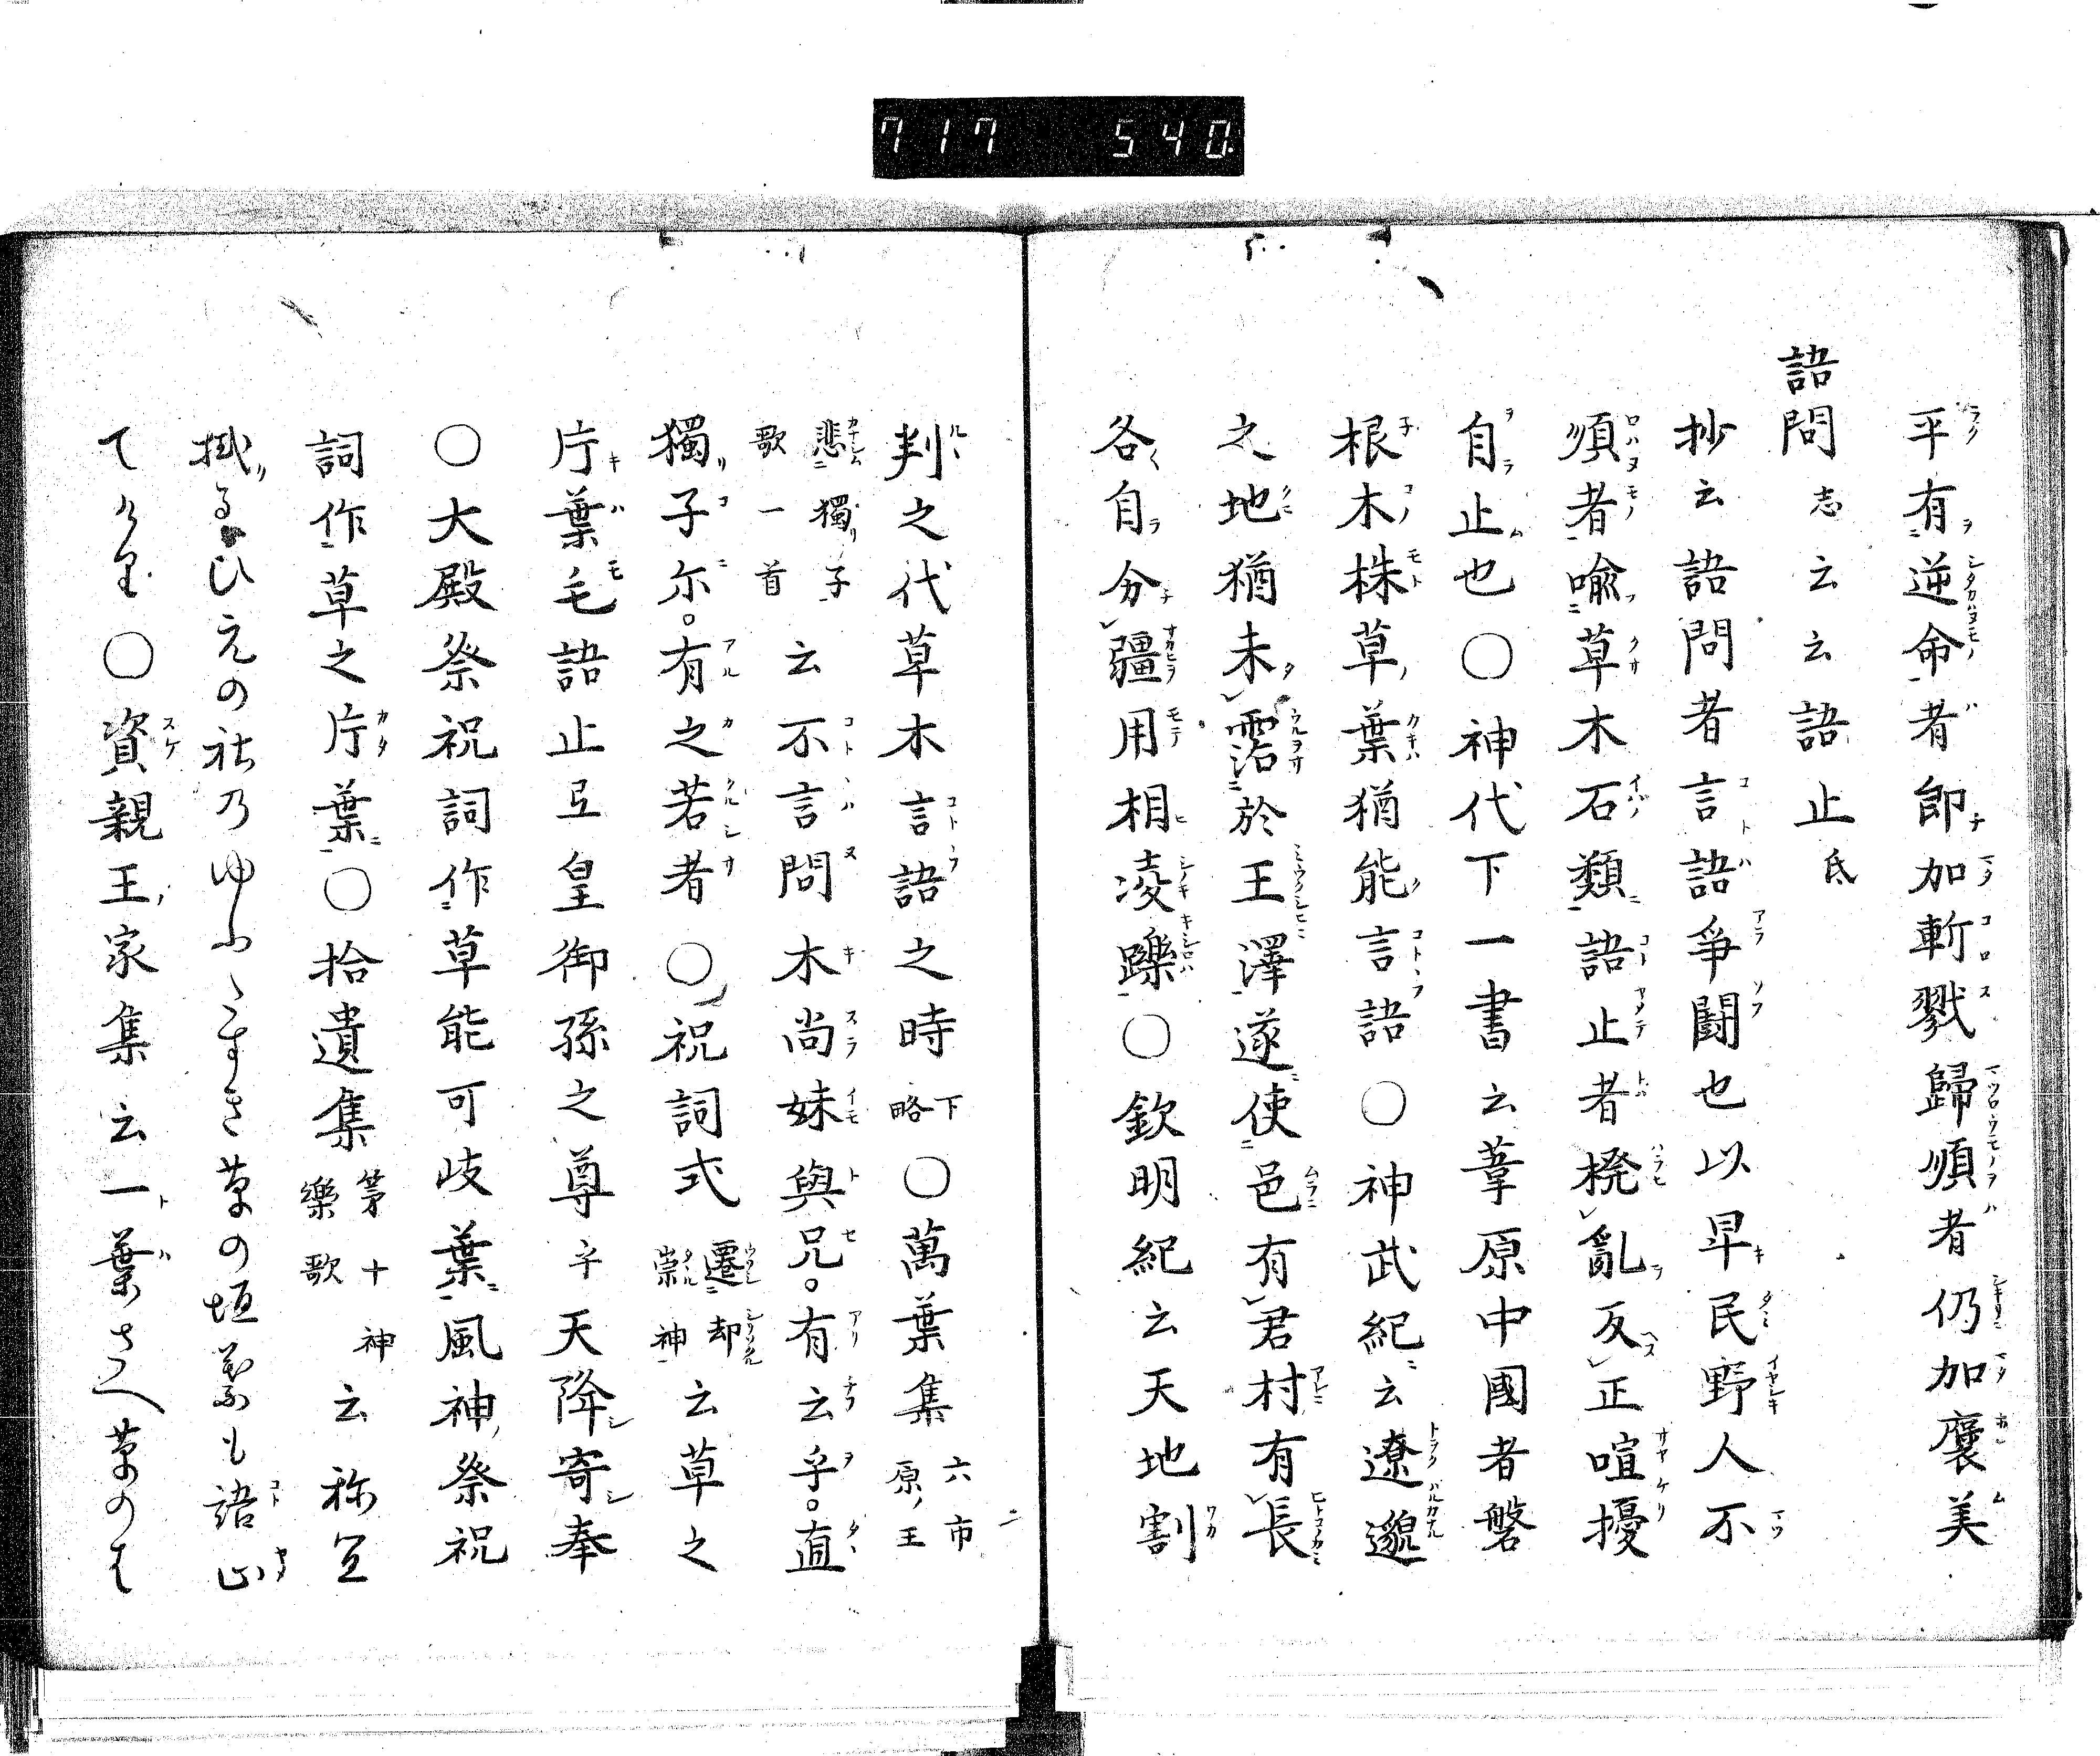 717 540
平有逆命者即加斬戮歸順者仍加襃美
語問志云云語止氐
抄云語問者言語爭闘也以卑民野人不
順者喩草木石類語止者撥亂反正喧擾
自止也〇神代下一書云葦原中國者磐
根木株草葉猶能言語〇神武紀云遼邈
之地猶未霑於王澤遂使邑有君村有長
各自分疆用相凌躒〇欽明紀云天地割
判之代草木言語之時下略〇萬葉集六市原ノ王
悲獨子歌一首云不言問木尚妹與兄。有云乎。直
獨子尓。有之若者〇祝詞式遷却崇神云草之
片葉毛語止弖皇御孫之尊乎天降寄奉
〇大殿祭祝詞作草能可岐葉風神祭祝
詞作草之片葉〇拾遺集第十神樂歌云祢宜
掛るひえの社乃ゆふたすき草の垣葉も語止
てきけ〇資親王家集云一葉さへ草のは